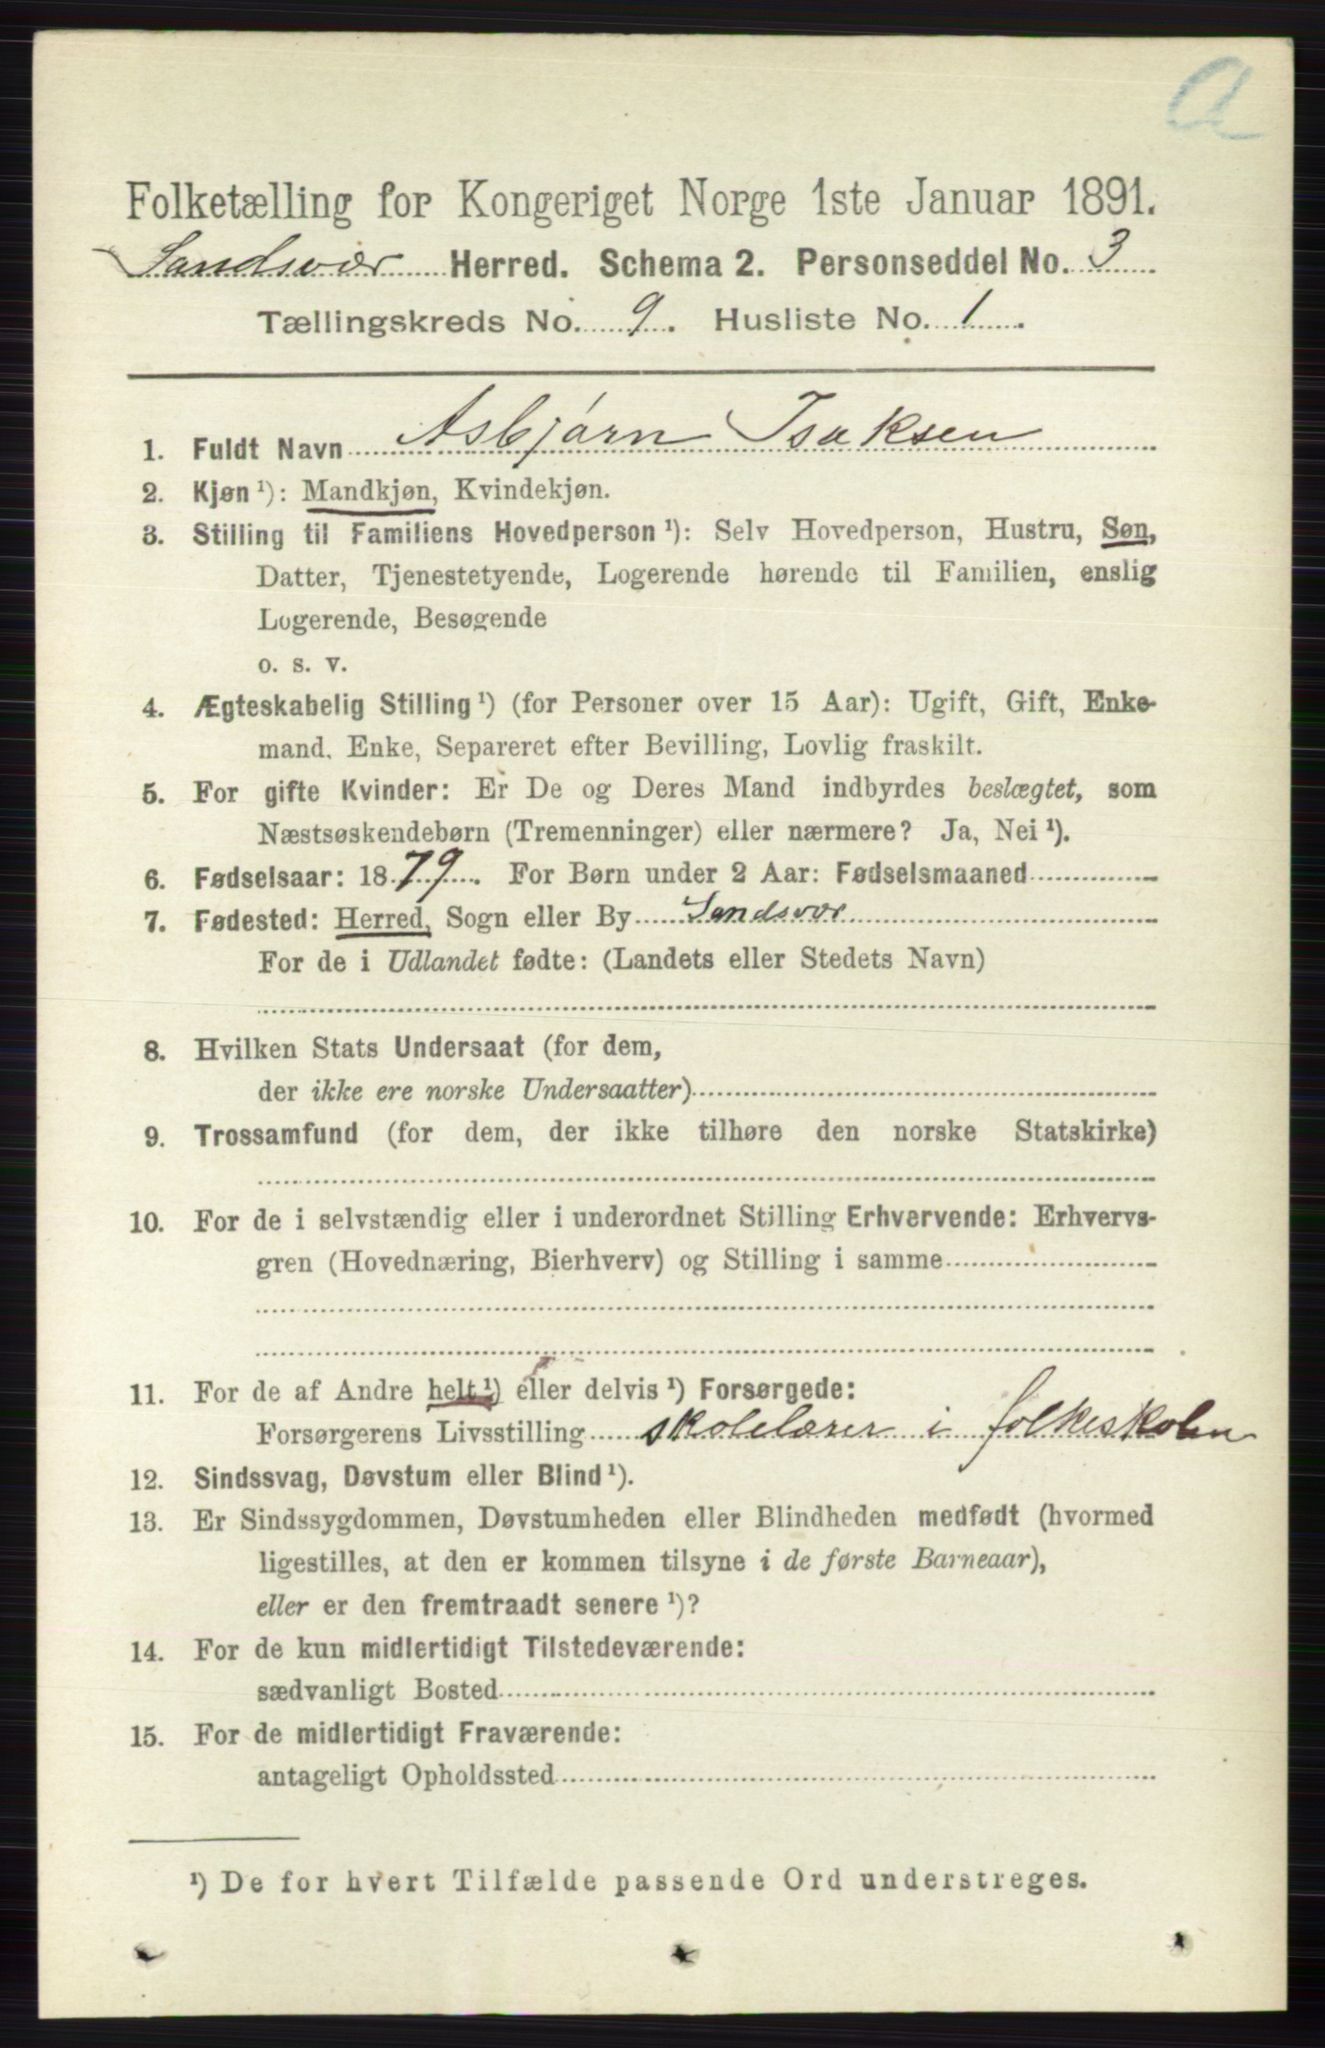 a
Folketælling for Kongeriget Norge 1ste Januar 1891.
Sandsvær Herred. Schema 2. Personseddel No. 3
Tællingskreds No. 9. Husliste No. 1.
1. Fuldt Navn Asbjørn Isaksen
2. Kjøn ¹): Mandkjøn, Kvindekjøn.
3. Stilling til Familiens Hovedperson ¹): Selv Hovedperson, Hustru, Søn,
Datter, Tjenestetyende, Logerende hørende til Familien, enslig
Logerende, Besøgende
o. s. v.
4. Ægteskabelig Stilling ¹) (for Personer over 15 Aar): Ugift, Gift, Enke-
mand, Enke, Separeret efter Bevilling, Lovlig fraskilt.
5. For gifte Kvinder: Er De og Deres Mand indbyrdes beslægtet, som
Næstsøskendebørn (Tremenninger) eller nærmere? Ja, Nei ¹).
6. Fødselsaar: 1879. For Børn under 2 Aar: Fødselsmaaned
7. Fødested: Herred, Sogn eller By Sandsvær
For de i Udlandet fødte: (Landets eller Stedets Navn)
8. Hvilken Stats Undersaat (for dem,
der ikke ere norske Undersaatter)
9. Trossamfund (for dem, der ikke tilhøre den norske Statskirke)
10. For de i selvstændig eller i underordnet Stilling Erhvervende: Erhvervs-
gren (Hovednæring, Bierhverv) og Stilling i samme
11. For de af Andre helt ¹) eller delvis ¹) Forsørgede:
Forsørgerens Livsstilling skolelærer i folkeskolen
12. Sindssvag, Døvstum eller Blind ¹).
13. Er Sindssygdommen, Døvstumheden eller Blindheden medfødt (hvormed
ligestilles, at den er kommen tilsyne i de første Barneaar),
eller er den fremtraadt senere ¹)?
14. For de kun midlertidigt Tilstedeværende:
sædvanligt Bosted
15. For de midlertidigt Fraværende:
antageligt Opholdssted
¹) De for hvert Tilfælde passende Ord understreges.